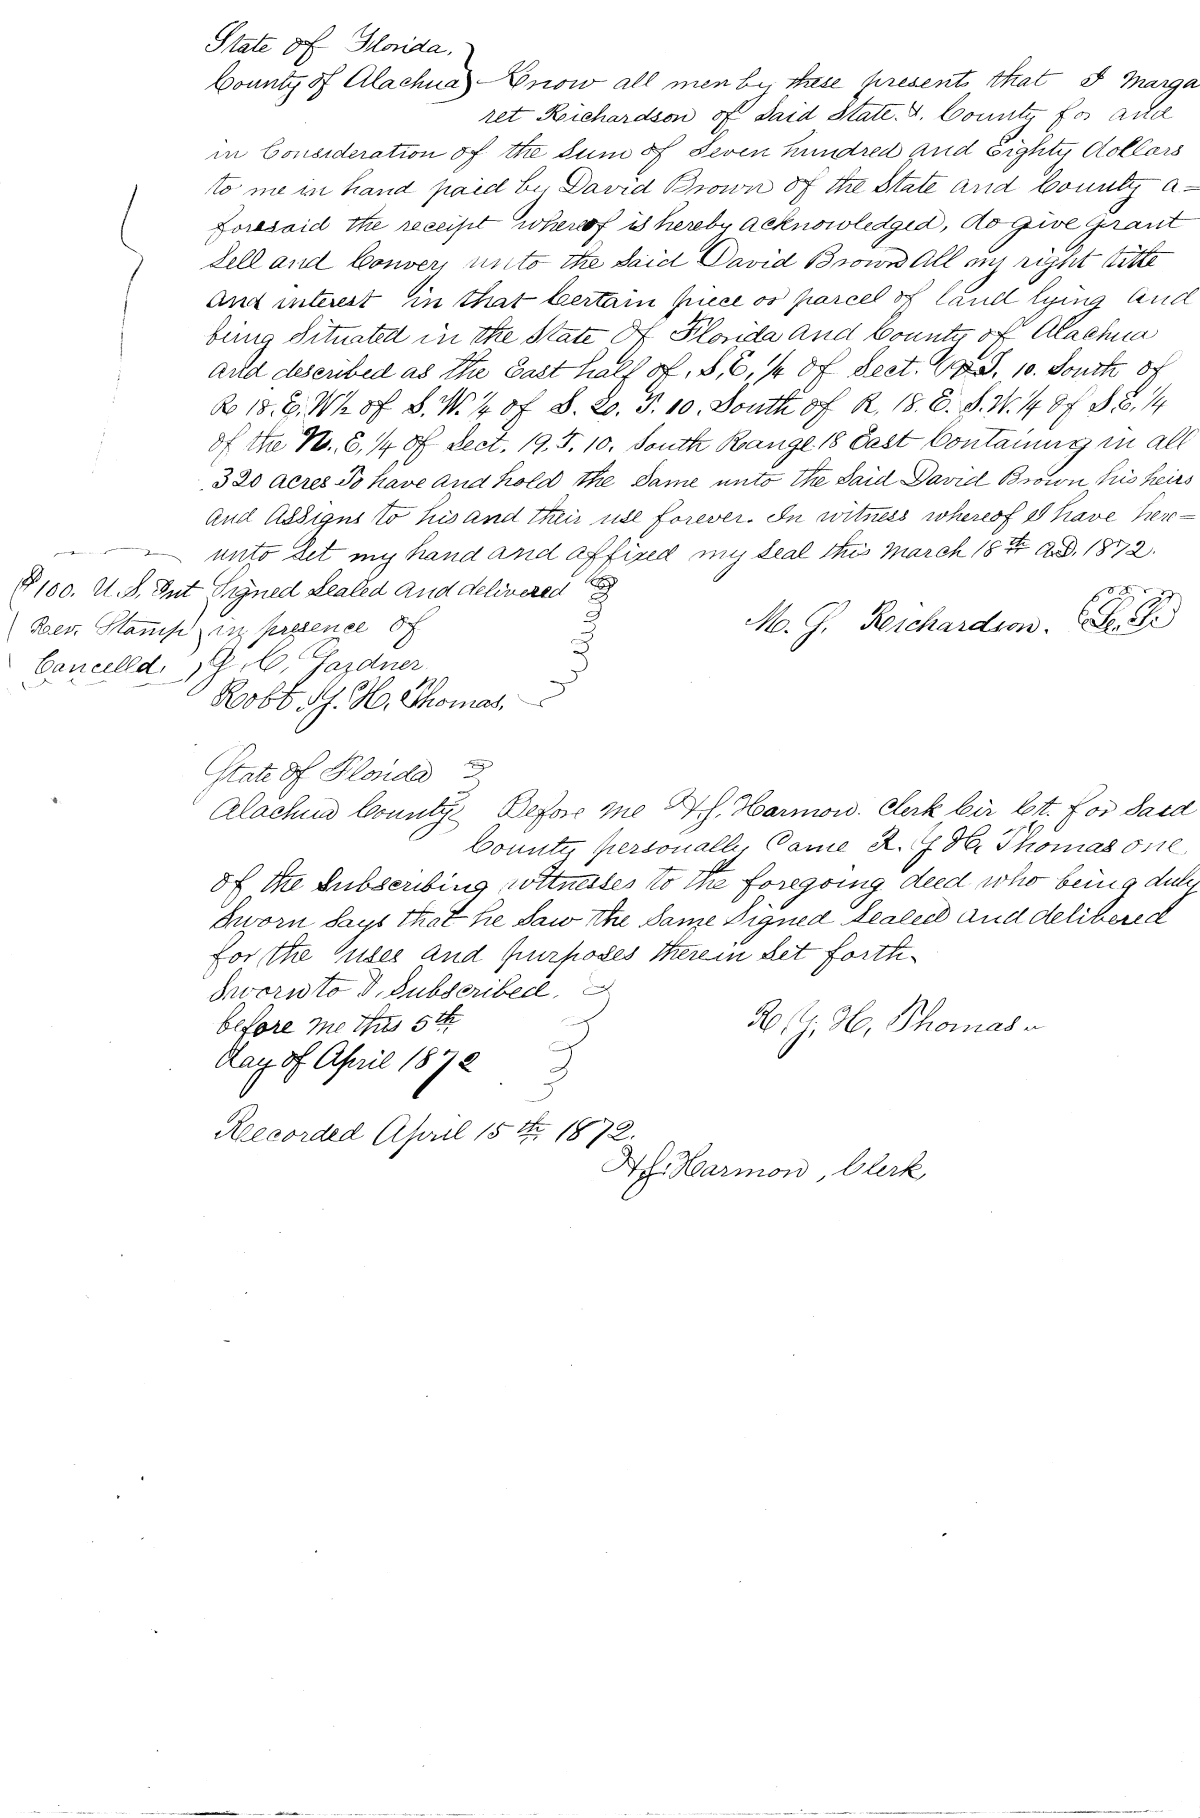 State of Florida.
County of Alachua) Know all men by these presents that I Marga
ret Reichardson of Said State & County for and
in Consideration of the Sum of Seven hundred and Eighty dollars
to me in hand paid by David Brown of the State and County a=
foresaid the receipt wherof is hereby acknowledged, do give grant
Sell and Convey unto the Said David Brown All my right title
and interest in that Certain piece or parcel of land lying and
being Situated in the State Of Florida and County of Alachua
and described as the East half of S. E. 1/4 Of Sect. T. 10. South of
R 18. E. W½ of S. W. ¼ of S. 20. T. 10. South of R. 18. E. S. W. ¼ of S. E. ¼
of the N. E. ¼ Of Sect. 19. T. 10. South Range 18 East Containing in all
320 acres To have and hold the Same unto the Said David Brown his heirs
and Assigns to his and their use forever. In witness whereof I have her=
unto Set my hand and affixed my Seal this March 18th A.D. 1872.
$100. U. S. Int Signed Sealed and delivered
Rev. Stamp in presence of M. G. Reichardson. (L. S.)
Cancelld. G. C. Gardner
Robt. G. H. Thomas.
State Of Florida
Alachua County Before me H. S. Harmon. Clerk Cir Ct. for Said
County personally Came R. G. H. Thomas one
of the Subscribing witnesses to the foregoing deed who being duly
Sworn Says that he Saw the Same Signed Sealed and delivered
for the uses and purposes therein Set forth.
Sworn to & Subscribed.
before me this 5th R. G. H. Thomas
day of April 1872
Recorded April 15th 1872.
H. S. Harmon, Clerk